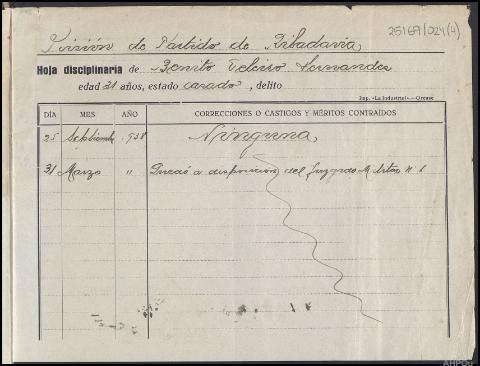 25169/024(4)
Prisión de Partido de Ribadavia,
Hoja disciplinaria de Benito Hernandez
edad 31 años, estado casado, delito
Imp. «La Industrial».-Orense
DÍA MES AÑO CORRECCIONES O CASTIGOS Y MÉRITOS CONTRAÍDOS
25 Septiembre 1938 Ninguna,
31 Marzo " Quedó a disposición del Juzgado Militar n.
AHPOu